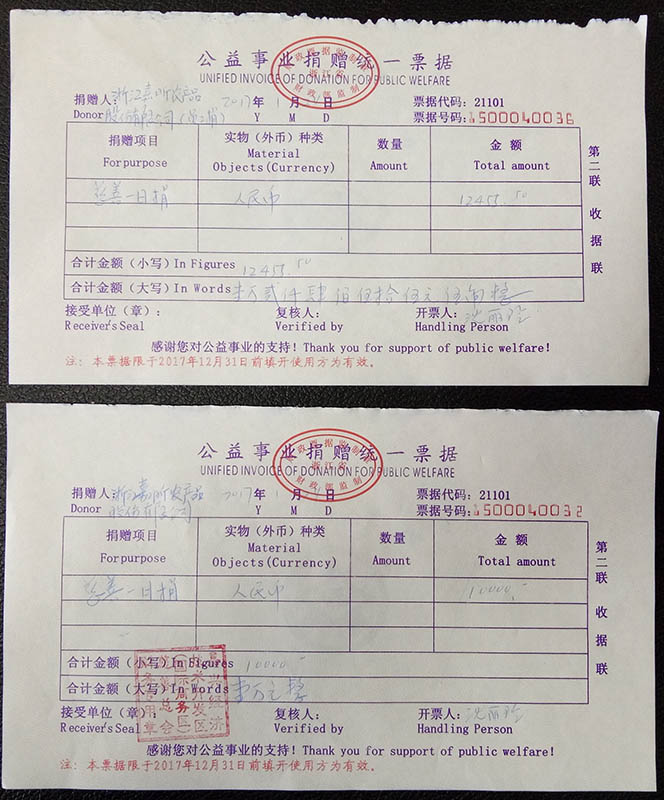 公益事业捐赠统一票据
UNIFIED INVOICE OF DONATION FOR PUBLIC WELFARE
财政部监制
捐赠人: 农产品 2017年 1月 日
Donor 股份有限公司 Y M D
票据代码: 21101
票据号码: 1500040036
捐赠项目 实物(外币)种类 数量 金额
For purpose Material Objects(Currency) Amount Total amount
慈善一日捐 人民币 12455.50
合计金额(小写)In Figures 12455.50
合计金额(大写)In Words 壹万贰仟肆佰伍拾伍元伍角整
接受单位(章): 复核人: 开票人:
Receiver's Seal Verified by Handling Person
感谢您对公益事业的支持! Thank you for support of public welfare!
注: 本票据限于2017年12月31日前填开使用方为有效。
第二联 收据联
公益事业捐赠统一票据
UNIFIED INVOICE OF DONATION FOR PUBLIC WELFARE
财政部监制
捐赠人: 农产品 2017年 1月 日
Donor 股份有限公司 Y M D
票据代码: 21101
票据号码: 1500040032
捐赠项目 实物(外币)种类 数量 金额
For purpose Material Objects(Currency) Amount Total amount
慈善一日捐 人民币 10000.-
合计金额(小写)In Figures 10000.-
合计金额(大写)In Words 壹万元整
接受单位(章): 复核人: 开票人:
Receiver's Seal Verified by Handling Person
感谢您对公益事业的支持! Thank you for support of public welfare!
注: 本票据限于2017年12月31日前填开使用方为有效。
第二联 收据联